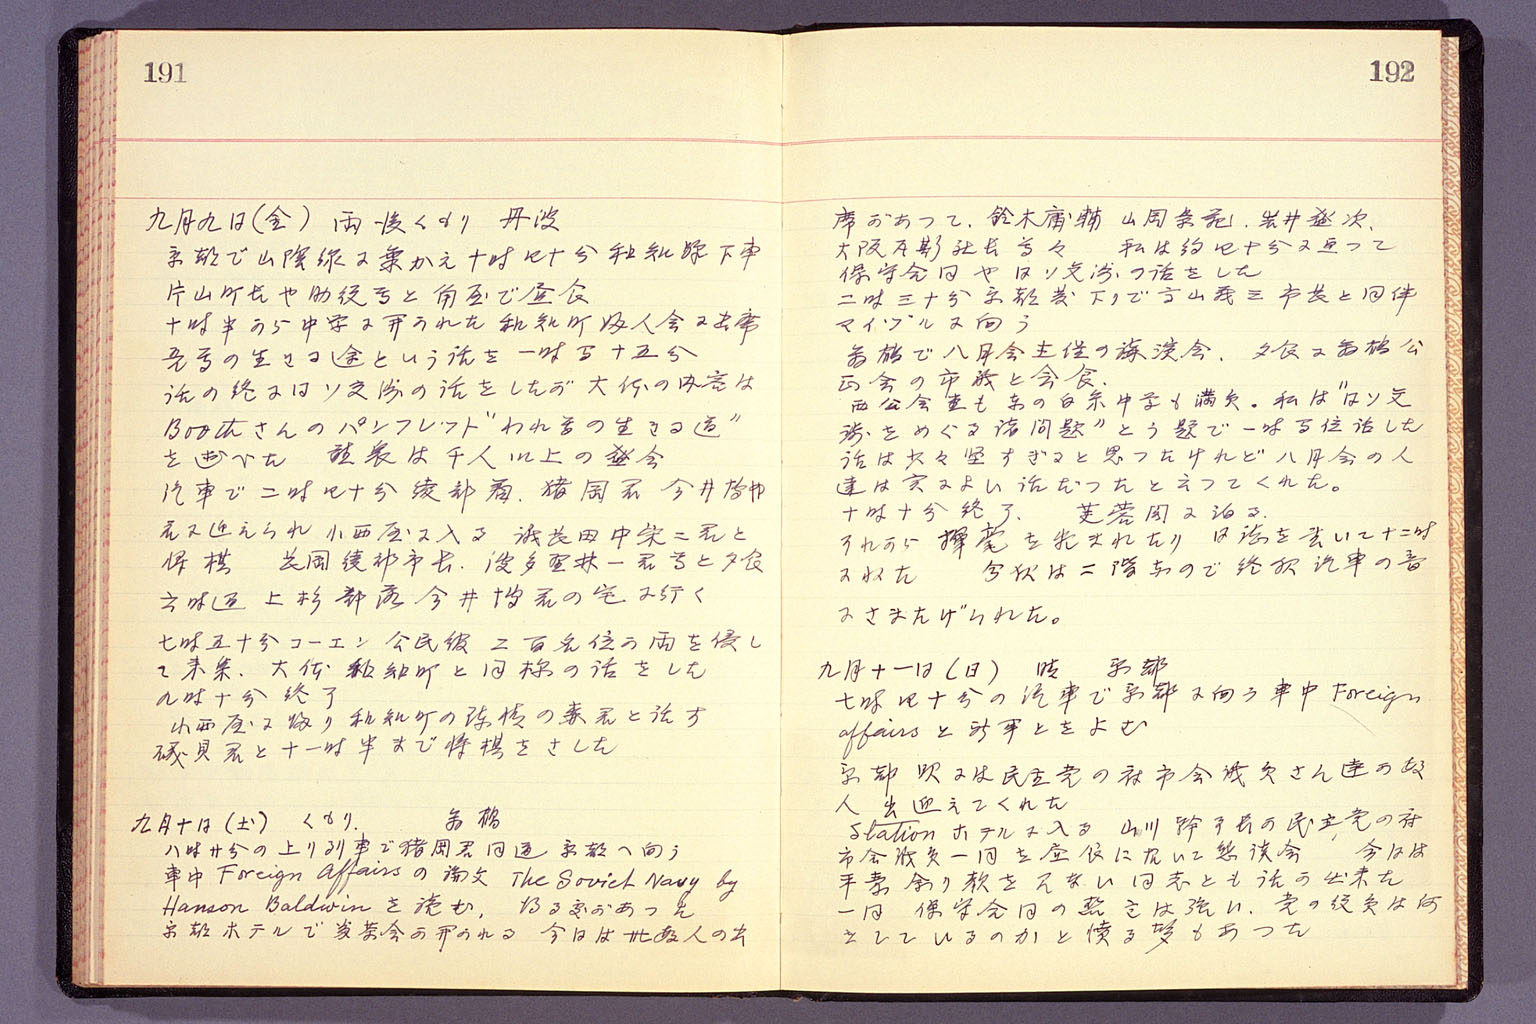 191
九月九日(金) 雨後くもり 丹波
京都で山陰線に乗かえ十時四十分和知駅下車
片山町長や助役等と角屋で昼食
十時半から中学に開かれた和知町婦人会に出席
吾等の生きる途という話を一時間十五分
話の終には日ソ交渉の話をしたが大体の内容は
Boothさんのパンフレット"われ等の生きる道"
を述べた 聴衆は千人以上の盛会
汽車で二時四十分綾部着、猪岡君 今井
君に迎えられ小西屋に入る 議長田中栄二君と
将棋 長岡綾部市長、波多野林一君等と夕食
六時過 上杉部落今井君の宅に行く
七時五十分コーエン 公民館 二百名位の雨を侵し
て来集、大体和知町と同様の話をした
九時十分終了
小西屋に帰り和知町の陳情の森君と話す
磯貝君と十一時半まで将棋をさした
九月十日(土) くもり、 前橋
八時廿分の上り列車で猪岡君同道京都へ向う
車中 Foreign Affairs の論文 The Soviet Navy by
Hanson Baldwin を読む、
京都ホテルで茶会が開かれる 今日は廿数人の出
192
席があつて、鈴木庸輔 山岡 岩井雄次、
大阪 社長等々 私は約四十分に亘つて
保守合同や日ソ交渉の話をした
二時三十分京都発 下りで高山義三市長と同伴
マイヅルに向う
舞鶴で八月会主催の講演会、夕食に舞鶴公
会の市議と会食、
西公会堂も東の白糸中学も満員。私は"日ソ交
渉をめぐる諸問題"とう題で一時間位話した
話は少々堅すぎると思つたけれど八月会の人
達は実によい話だつたと云つてくれた。
十時十分終了、 芙蓉閣に泊る、
それから揮毫を頼まれたり 日誌を書いて十二時
にねた 今夜は二階なので終夜汽車の音
にさまたげられた。
九月十一日(日) 晴 京都
七時四十分の汽車で京都に向う車中 Foreign
affairs と新軍とをよむ
京都駅には民主党の府市会議員さん達が数
人出迎えてくれた
Station ホテルに入る 山川 等の民主党の府
市会議員一同を昼食に於いて懇談会 今日は
平常余り款を 同志とも話が出来た
一同 保守合同の熱意は強い、党の役員は何
をしているのかと憤る者もあつた